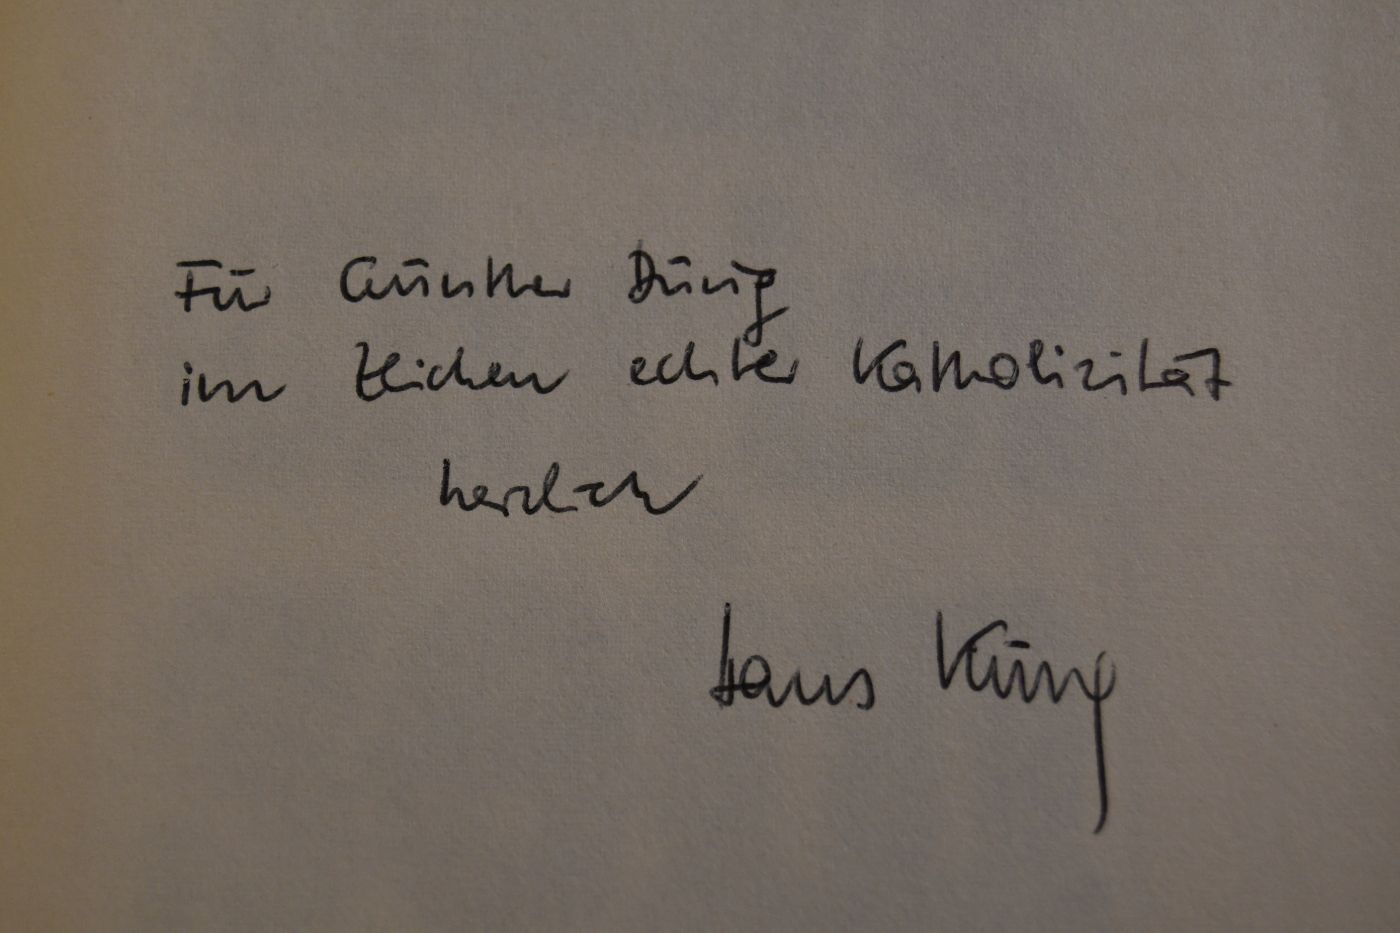 Für Günther Dürig
im Zeichen echter Katholizität
herzlich
Hans Küng